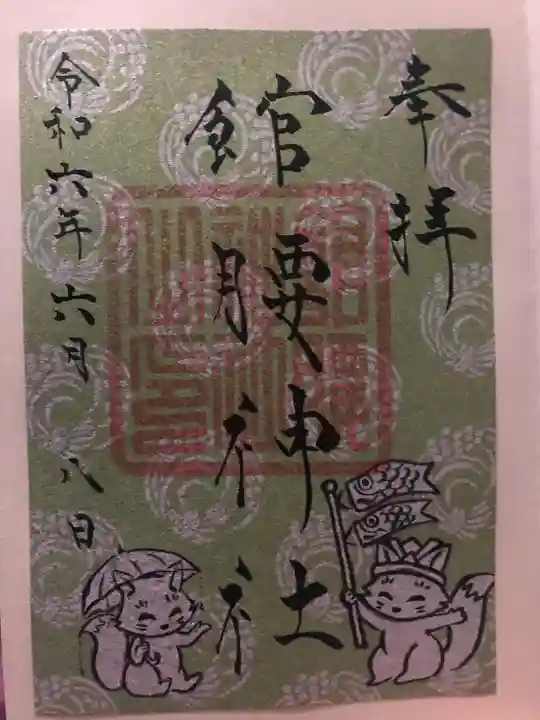 奉拝
館腰神社
令和六年六月八日